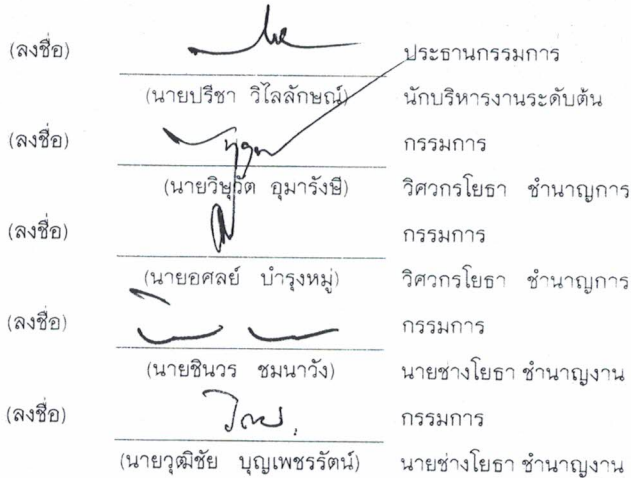 (ลงชื่อ) ประธานกรรมการ
(นายปรีชา วิไลลักษณ์) นักบริหารงานระดับต้น
(ลงชื่อ) กรรมการ
(นายวิษุวัต อุมารังษี) วิศวกรโยธา ชำนาญการ
(ลงชื่อ) กรรมการ
(นายอศลย์ บำรุงหมู่) วิศวกรโยธา ชำนาญการ
(ลงชื่อ) กรรมการ
(นายชินวร ชมนาวัง) นายช่างโยธา ชำนาญงาน
(ลงชื่อ) กรรมการ
(นายวุฒิชัย บุญเพชรรัตน์) นายช่างโยธา ชำนาญงาน